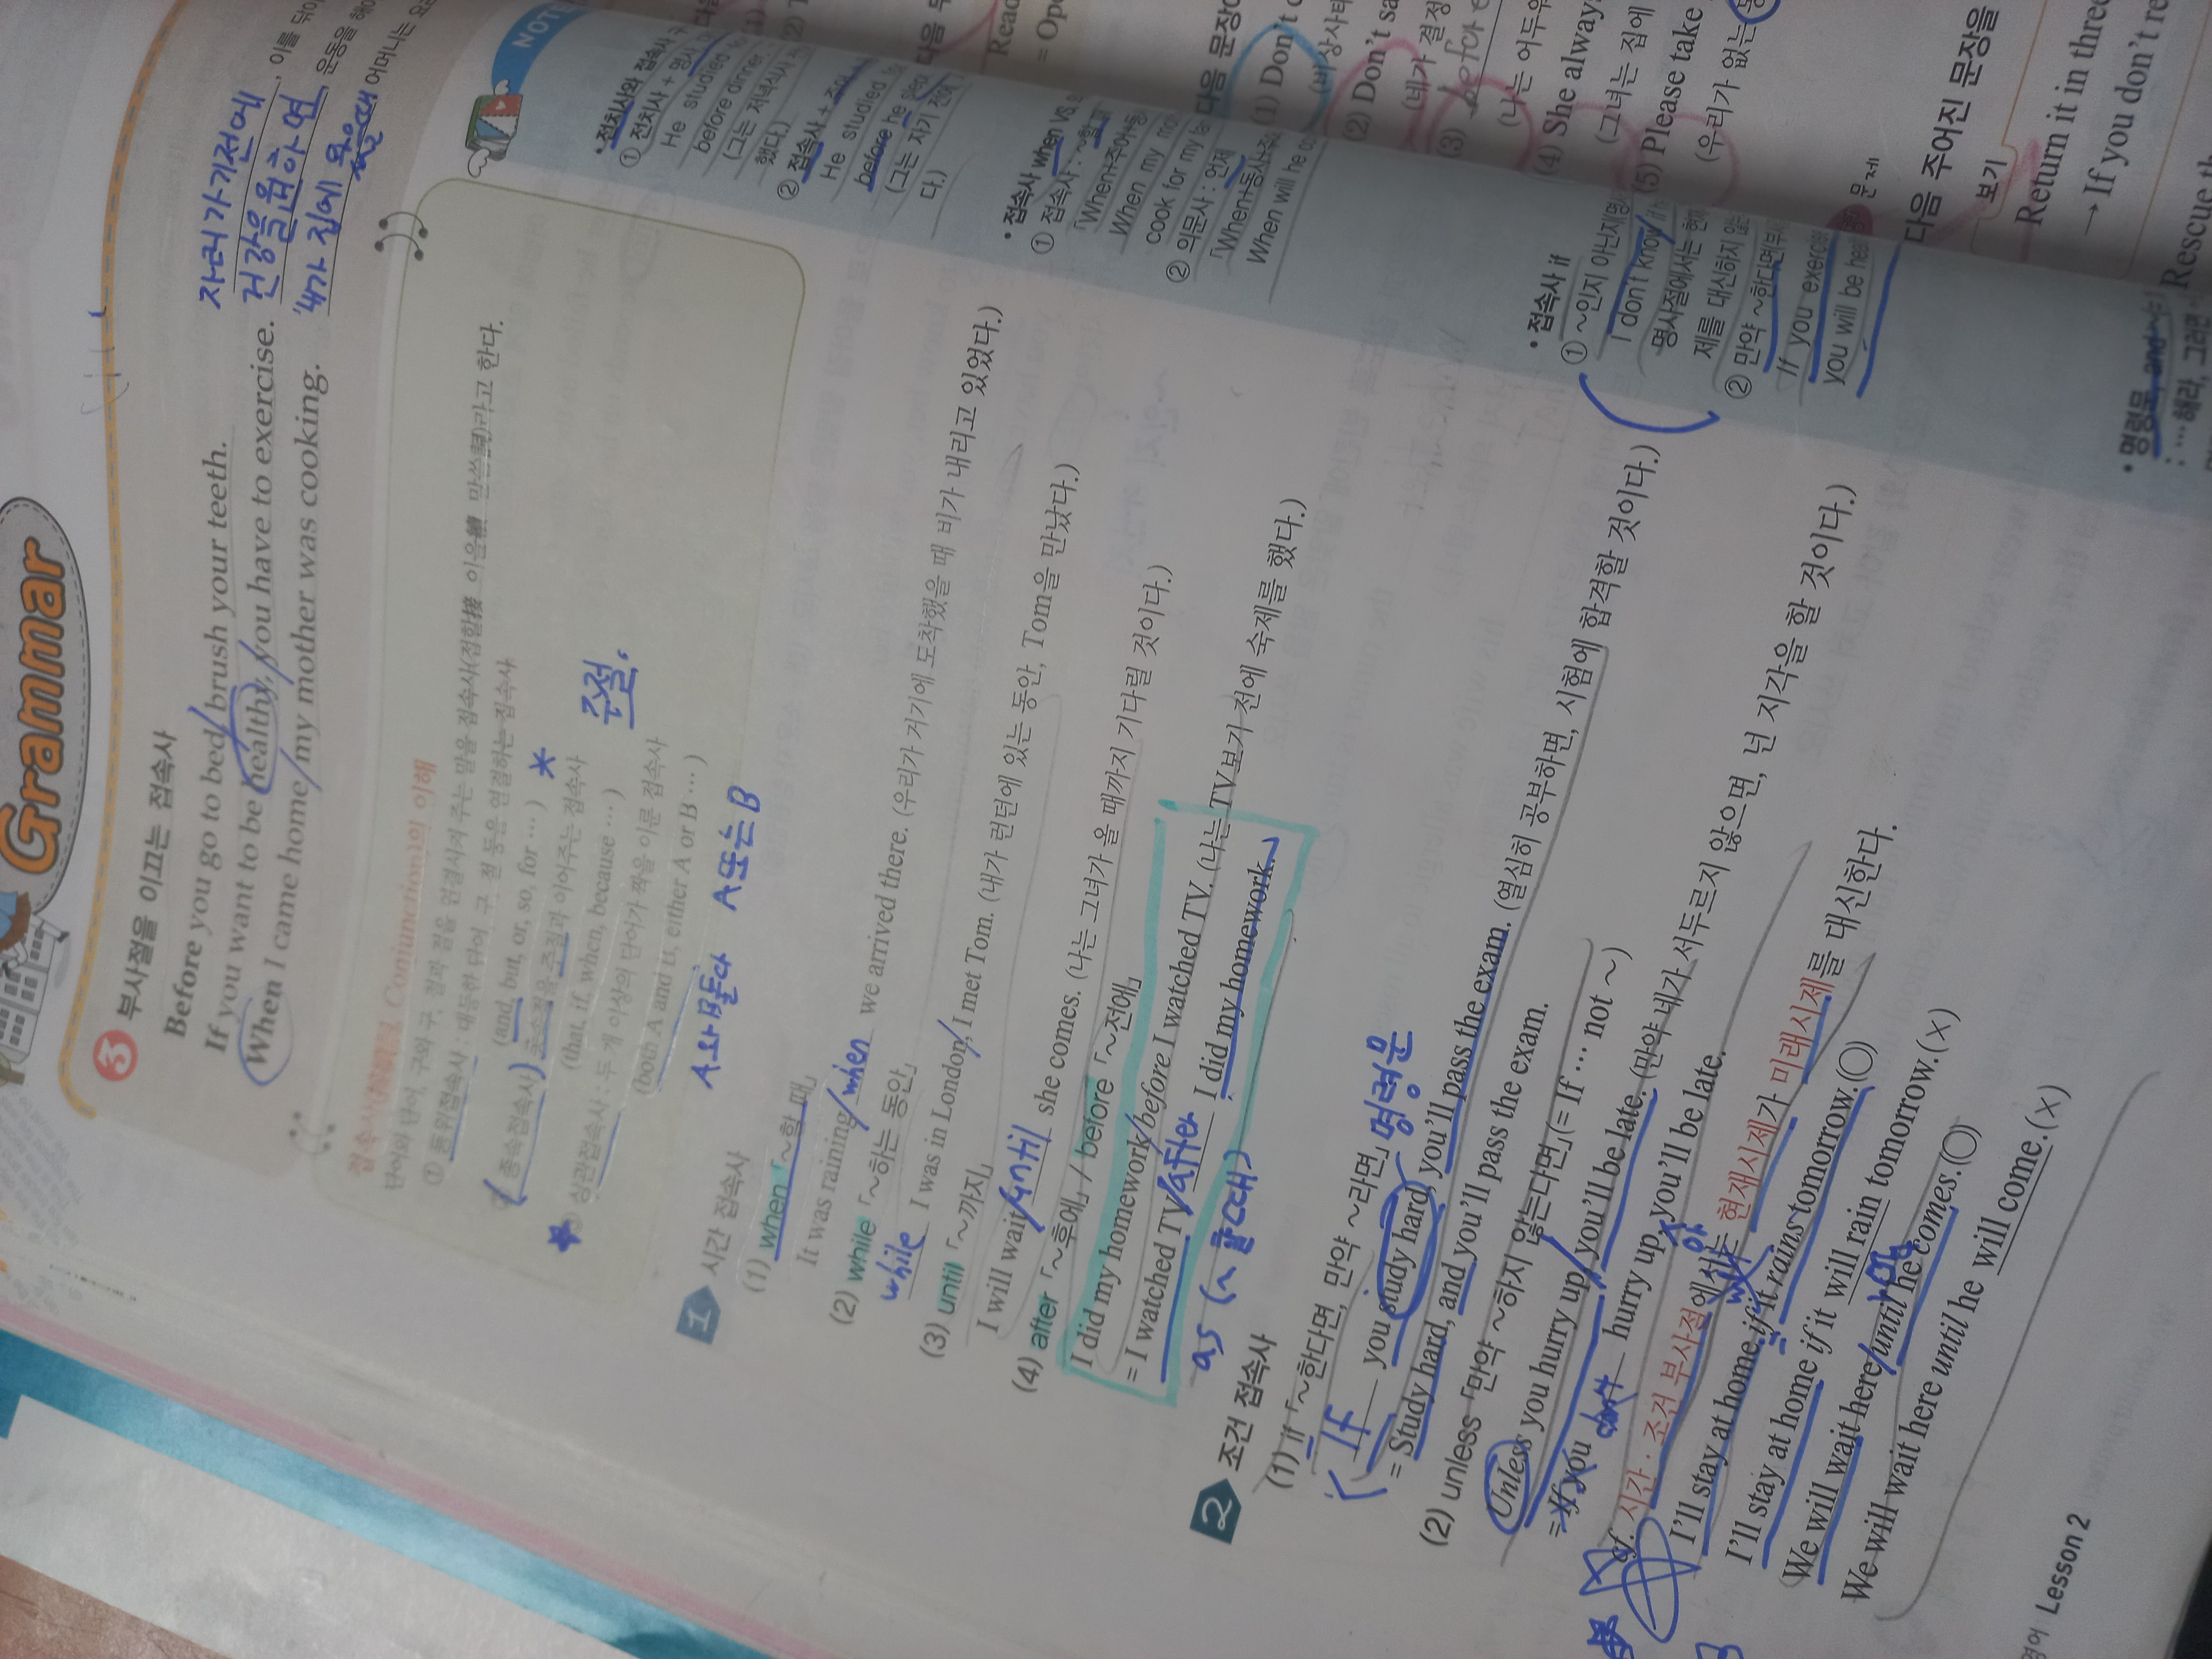 Grammar
3 부사절을 이끄는 접속사
Before you go to bed/brush your teeth. 자러 가기전에, 이를 닦아
If you want to be healthy,/you have to exercise. 건강을 원하면, 운동을 해야
When I came home/my mother was cooking. 내가 집에 왔을때 어머니는 요리
접속사 Conjunction의 이해
단어와 단어, 구와 구, 절과 절을 연결시켜 주는 말을 접속사(접할接 이을續 말씀詞)라고 한다.
① 등위접속사 : 대등한 단어, 구, 절 등을 연결하는 접속사
(and, but, or, so, for …) *
종속접속사 종속절을 주절과 이어주는 접속사 주절.
(that, if, when, because …)
상관접속사 : 두 개 이상의 단어가 짝을 이룬 접속사
(both A and B, either A or B …)
A와 B둘다 A또는B
1 시간 접속사
(1) when 「~할 때」
It was raining/when we arrived there. (우리가 거기에 도착했을 때 비가 내리고 있었다.)
(2) while 「~하는 동안」
while I was in London,/I met Tom. (내가 런던에 있는 동안, Tom을 만났다.)
(3) until 「~까지」
I will wait/until she comes. (나는 그녀가 올 때까지 기다릴 것이다.)
(4) after 「~후에」 / before 「~전에」
I did my homework/before I watched TV. (나는 TV보기 전에 숙제를 했다.)
= I watched TV/after I did my homework.
as (~할때)
2 조건 접속사
(1) if 「~한다면, 만약 ~라면」 명령문
If you study hard, you'll pass the exam. (열심히 공부하면, 시험에 합격할 것이다.)
= Study hard, and you'll pass the exam.
(2) unless 「만약 ~하지 않는다면」(= If … not ~)
Unless you hurry up,/you'll be late. (만약 네가 서두르지 않으면, 넌 지각을 할 것이다.)
= If you don't hurry up, you'll be late.
cf. 시간·조건 부사절에서는 현재시제가 미래시제를 대신한다.
I'll stay at home if it rains tomorrow.(○)
I'll stay at home if it will rain tomorrow.(×)
We will wait here/until he comes.(○)
We will wait here until he will come.(×)
영어 Lesson 2
NOTE
• 전치사와 접속사
① 전치사 + 명사
He studied
before dinner.
(그는 저녁식사
했다.)
② 접속사 +
He studied
before he
(그는 자기 전에
다.)
• 접속사 when vs.
① 접속사 : ~할 때
「When+주어+동
When my
cook for my
② 의문사 : 언제
「When+동사+주
When will he
• 접속사 if
① ~인지 아닌지
I don't know if
명사절에서는 현
제를 대신하지 않
② 만약 ~한다면
If you exercise
you will be
• 명령문, and
: …해라, 그러면
= Ope
다음 문장
(1) Don't
(2) Don't sa
(네가 결정
(3) before
(나는 어두워
(4) She always
(그녀는 집에
(5) Please take
(우리가 없는
문제
다음 주어진 문장을
보기
Return it in three
→ If you don't re
Rescue th